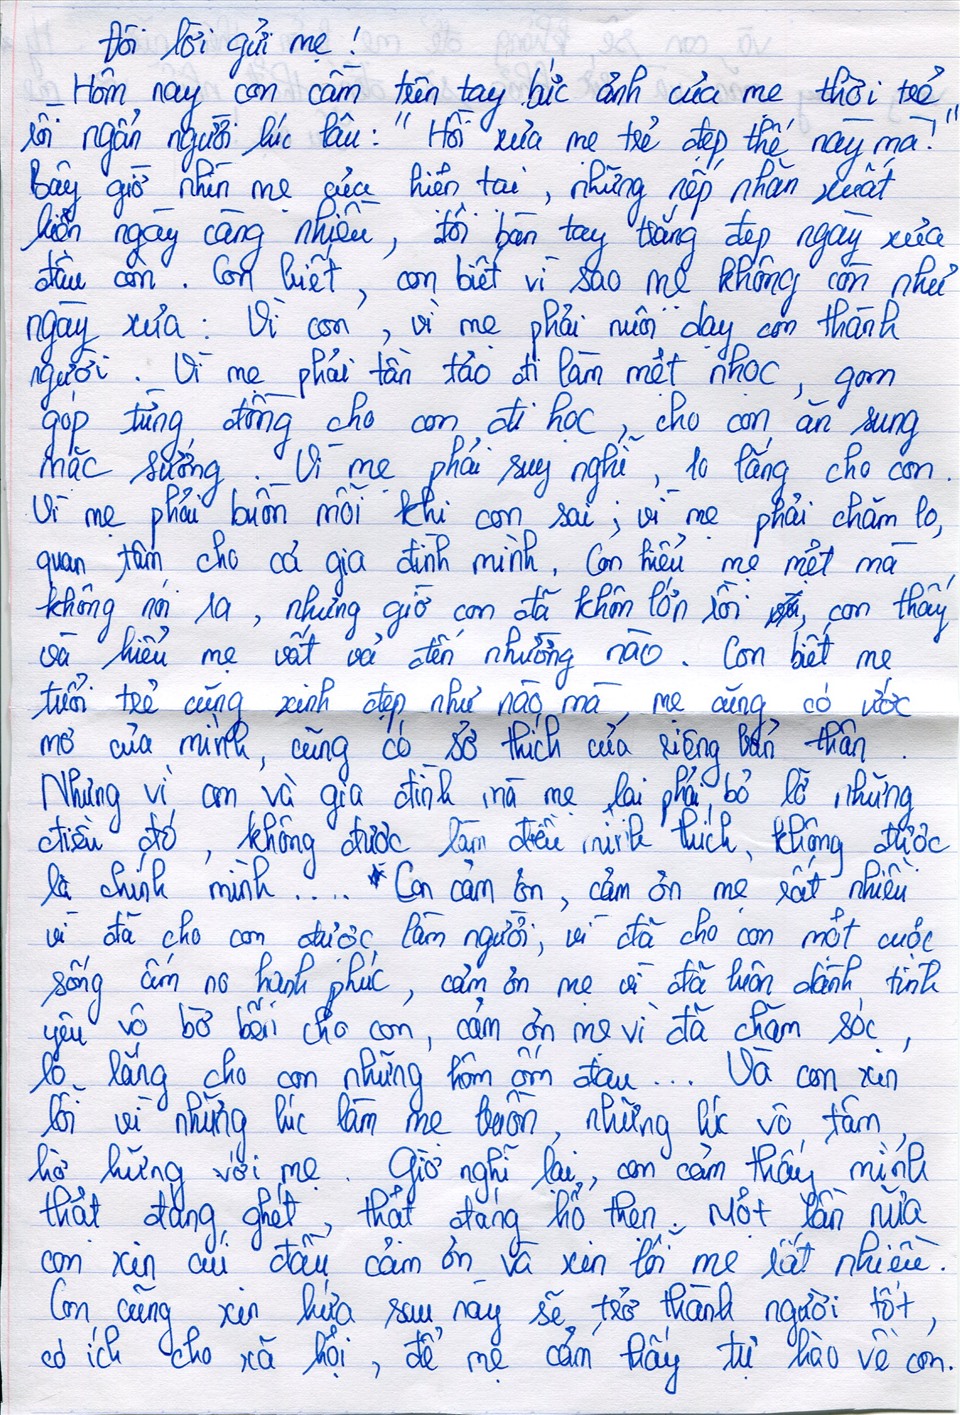 Đôi lời gửi mẹ !
_ Hôm nay con cầm trên tay bức ảnh của mẹ thời trẻ
rồi ngẩn người lúc lâu : " Hồi xưa mẹ trẻ đẹp thế này mà ! "
Bây giờ nhìn mẹ của hiện tại , những nếp nhăn xuất
hiện ngày càng nhiều , đôi bàn tay trắng đẹp ngày xưa
đâu còn . Con biết , con biết vì sao mẹ không còn như
ngày xưa : Vì con , vì mẹ phải nuôi dạy con thành
người . Vì mẹ phải tần tảo đi làm mệt nhọc , gom
góp từng đồng cho con đi học , cho con ăn sung
mặc sướng . Vì mẹ phải suy nghĩ , lo lắng cho con .
Vì mẹ phải buồn mỗi khi con sai ; vì mẹ phải chăm lo,
quan tâm cho cả gia đình mình . Con hiểu mẹ mệt mà
không nói ra , nhưng giờ con đã khôn lớn rồi , con thấy
và hiểu mẹ vất vả đến nhường nào . Con biết mẹ
tuổi trẻ cũng xinh đẹp như nào mà , mẹ cũng có ước
mơ của mình , cũng có sở thích của riêng bản thân .
Nhưng vì con và gia đình mà mẹ lại phải bỏ lỡ những
điều đó , không được làm điều mình thích , không được
là chính mình .... * Con cảm ơn , cảm ơn mẹ rất nhiều
vì đã cho con được làm người , vì đã cho con một cuộc
sống ấm no hạnh phúc , cảm ơn mẹ vì đã luôn dành tình
yêu vô bờ bến cho con , cảm ơn mẹ vì đã chăm sóc ,
lo lắng cho con những hôm ốm đau ... Và con xin
lỗi vì những lúc làm mẹ buồn , những lúc vô tâm ,
hờ hững với mẹ . Giờ nghĩ lại , con cảm thấy mình
thật đáng ghét , thật đáng hổ thẹn . Một lần nữa
con xin cúi đầu cảm ơn và xin lỗi mẹ rất nhiều .
Con cũng xin hứa sau này sẽ trở thành người tốt ,
có ích cho xã hội , để mẹ cảm thấy tự hào về con .